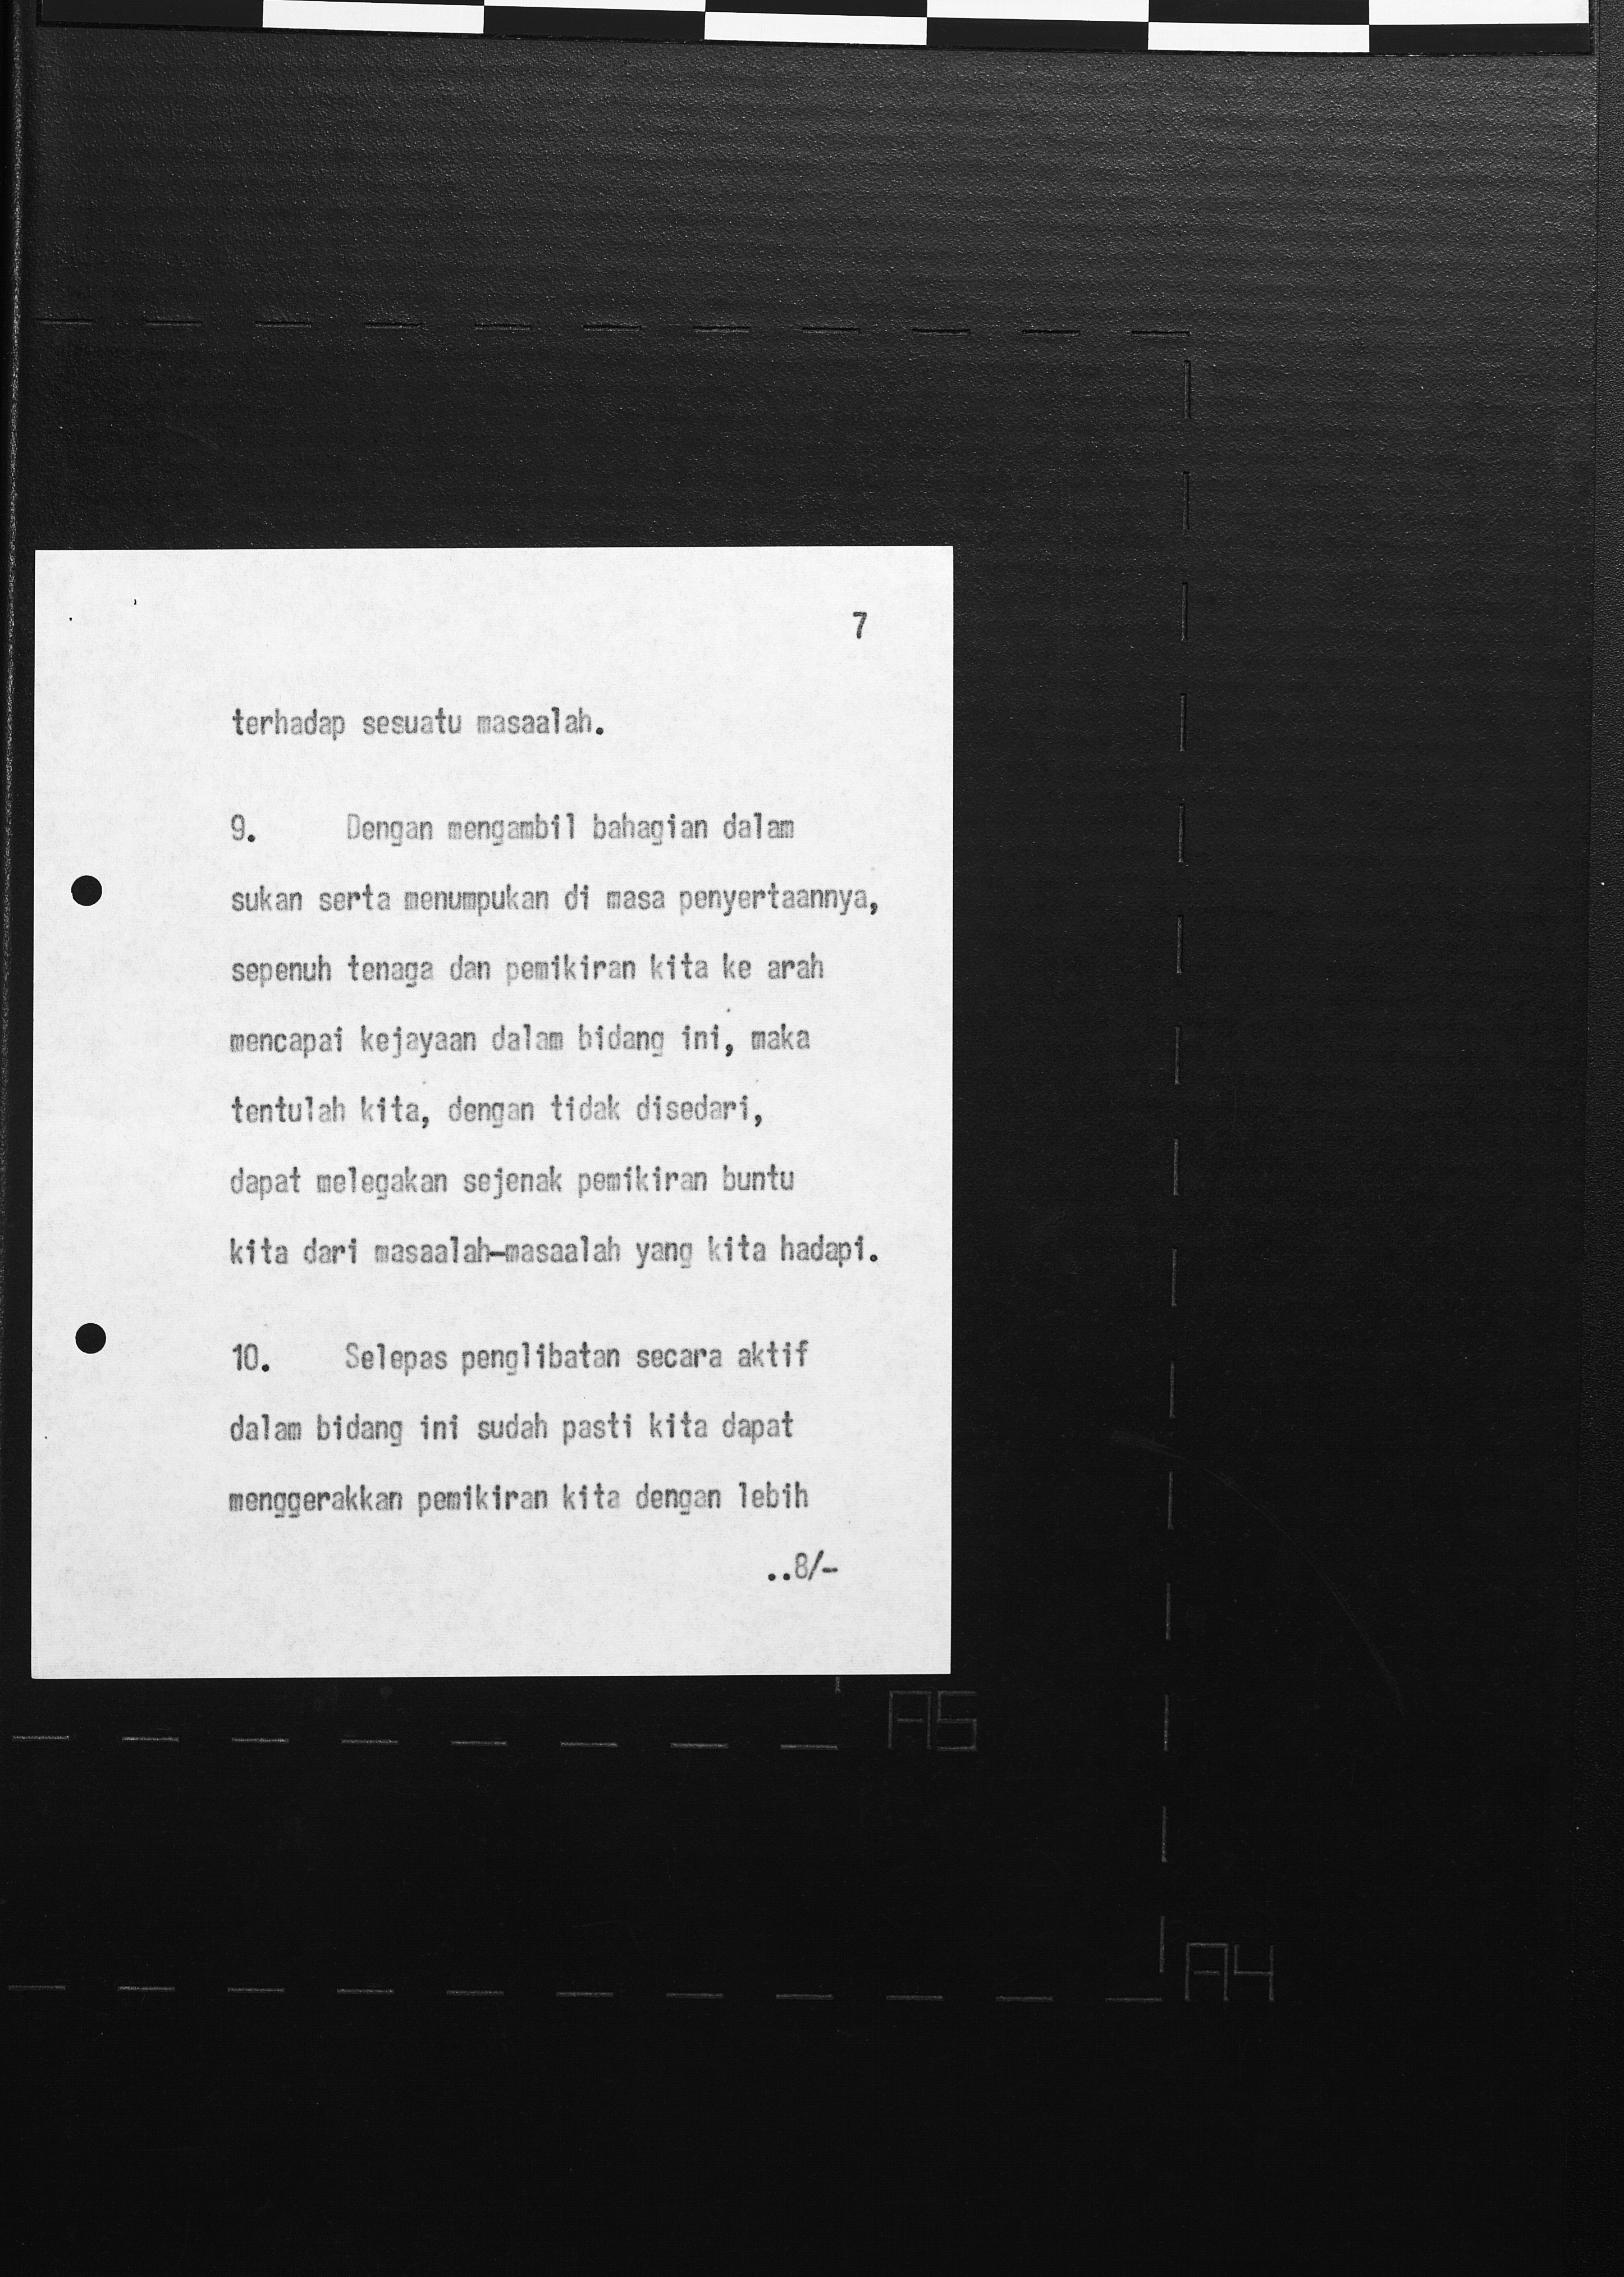 7
terhadap sesuatu masaalah.
9. Dengan mengambil bahagian dalam
sukan serta menumpukan di masa penyertaannya,
sepenuh tenaga dan pemikiran kita ke arah
mencapai kejayaan dalam bidang ini, maka
tentulah kita, dengan tidak disedari,
dapat melegakan sejenak pemikiran buntu
kita dari masaalah-masaalah yang kita hadapi.
10. Selepas penglibatan secara aktif
dalam bidang ini sudah pasti kita dapat
menggerakkan pemikiran kita dengan lebih
..8/-
A5
A4